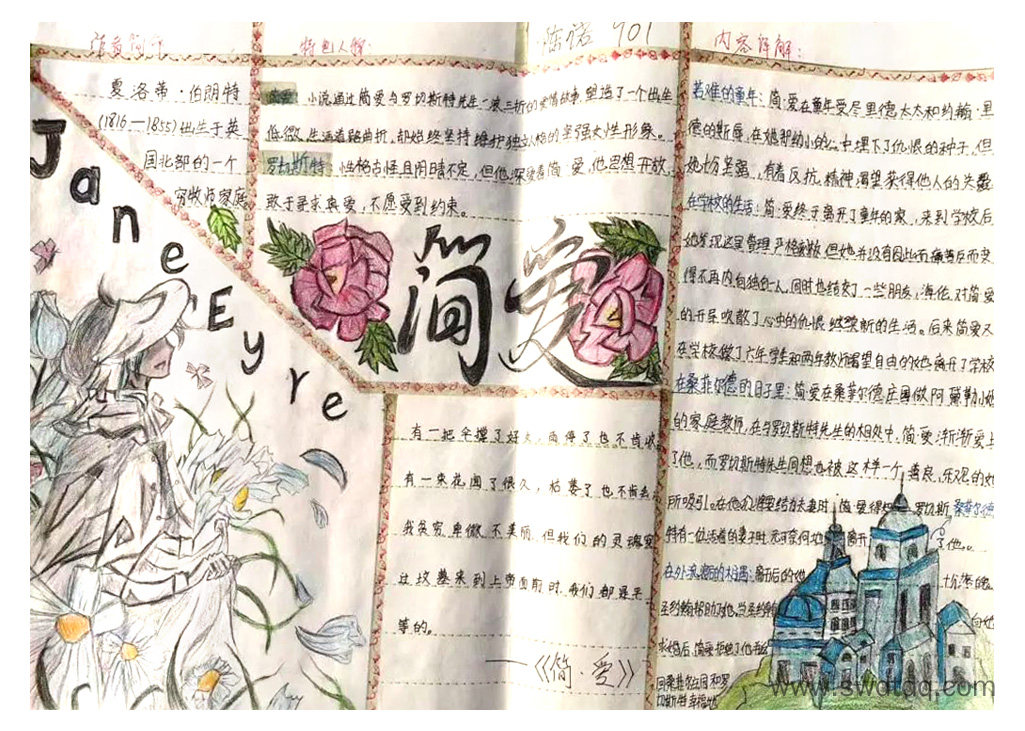 特色人物:
陈诺 901
内容详解:
夏洛蒂·伯朗特
(1816—1855)出生于英
国北部的一个
穷牧师家庭
Jane Eyre
小说通过简爱与罗切斯特先生一波三折的爱情故事,塑造了一个出生
低微、生活道路曲折,却始终坚持维护独立人格的坚强女性形象。
罗切斯特 性格古怪且阴晴不定,但他深爱着简·爱,他思想开放,
敢于寻求真爱,不愿受到约束。
简爱
有一把伞撑了好久,雨停了也不肯收
有一束花闻了很久,枯萎了也不肯丢
我贫穷卑微不美丽,但我们的灵魂穿
过坟墓来到上帝面前时,我们都是平
等的。
——《简·爱》
苦难的童年:简·爱在童年受尽里德太太和约翰·里
德的斯辱,在她那幼小的心中埋下了仇恨的种子,但
她十分坚强,有着反抗精神渴望获得他人的关
在学校的生活:简·爱终于离开了童年的家,来到学校后
她发现这里管理严格,但她并没有因此而痛苦反而变
得不再内向独的一人,同时也结交了一些朋友,海伦对简爱
的开导吹散了心中的仇恨,新的生活。后来简爱又
在学校做了六年学生和两年教师渴望自由的她离开了学校
在桑菲尔德的日子里:简·爱在桑菲尔德庄园做阿黛勒小姐
的家庭教师,在与罗切斯特先生的相处中,简·爱渐渐爱上
了他,而罗切斯特先生同想也被这样一个善良、乐观的她
所吸引。在他们结为夫妻时,简·爱得 罗切斯 桑菲尔德
特有一位活着的妻子时,无可奈何 离开 了他。
在外 的 遇:离开后的她
圣约翰帮助了他
求婚后,简爱拒绝了他
桑菲尔 和罗
切斯特幸福地
www.swdtdq.com